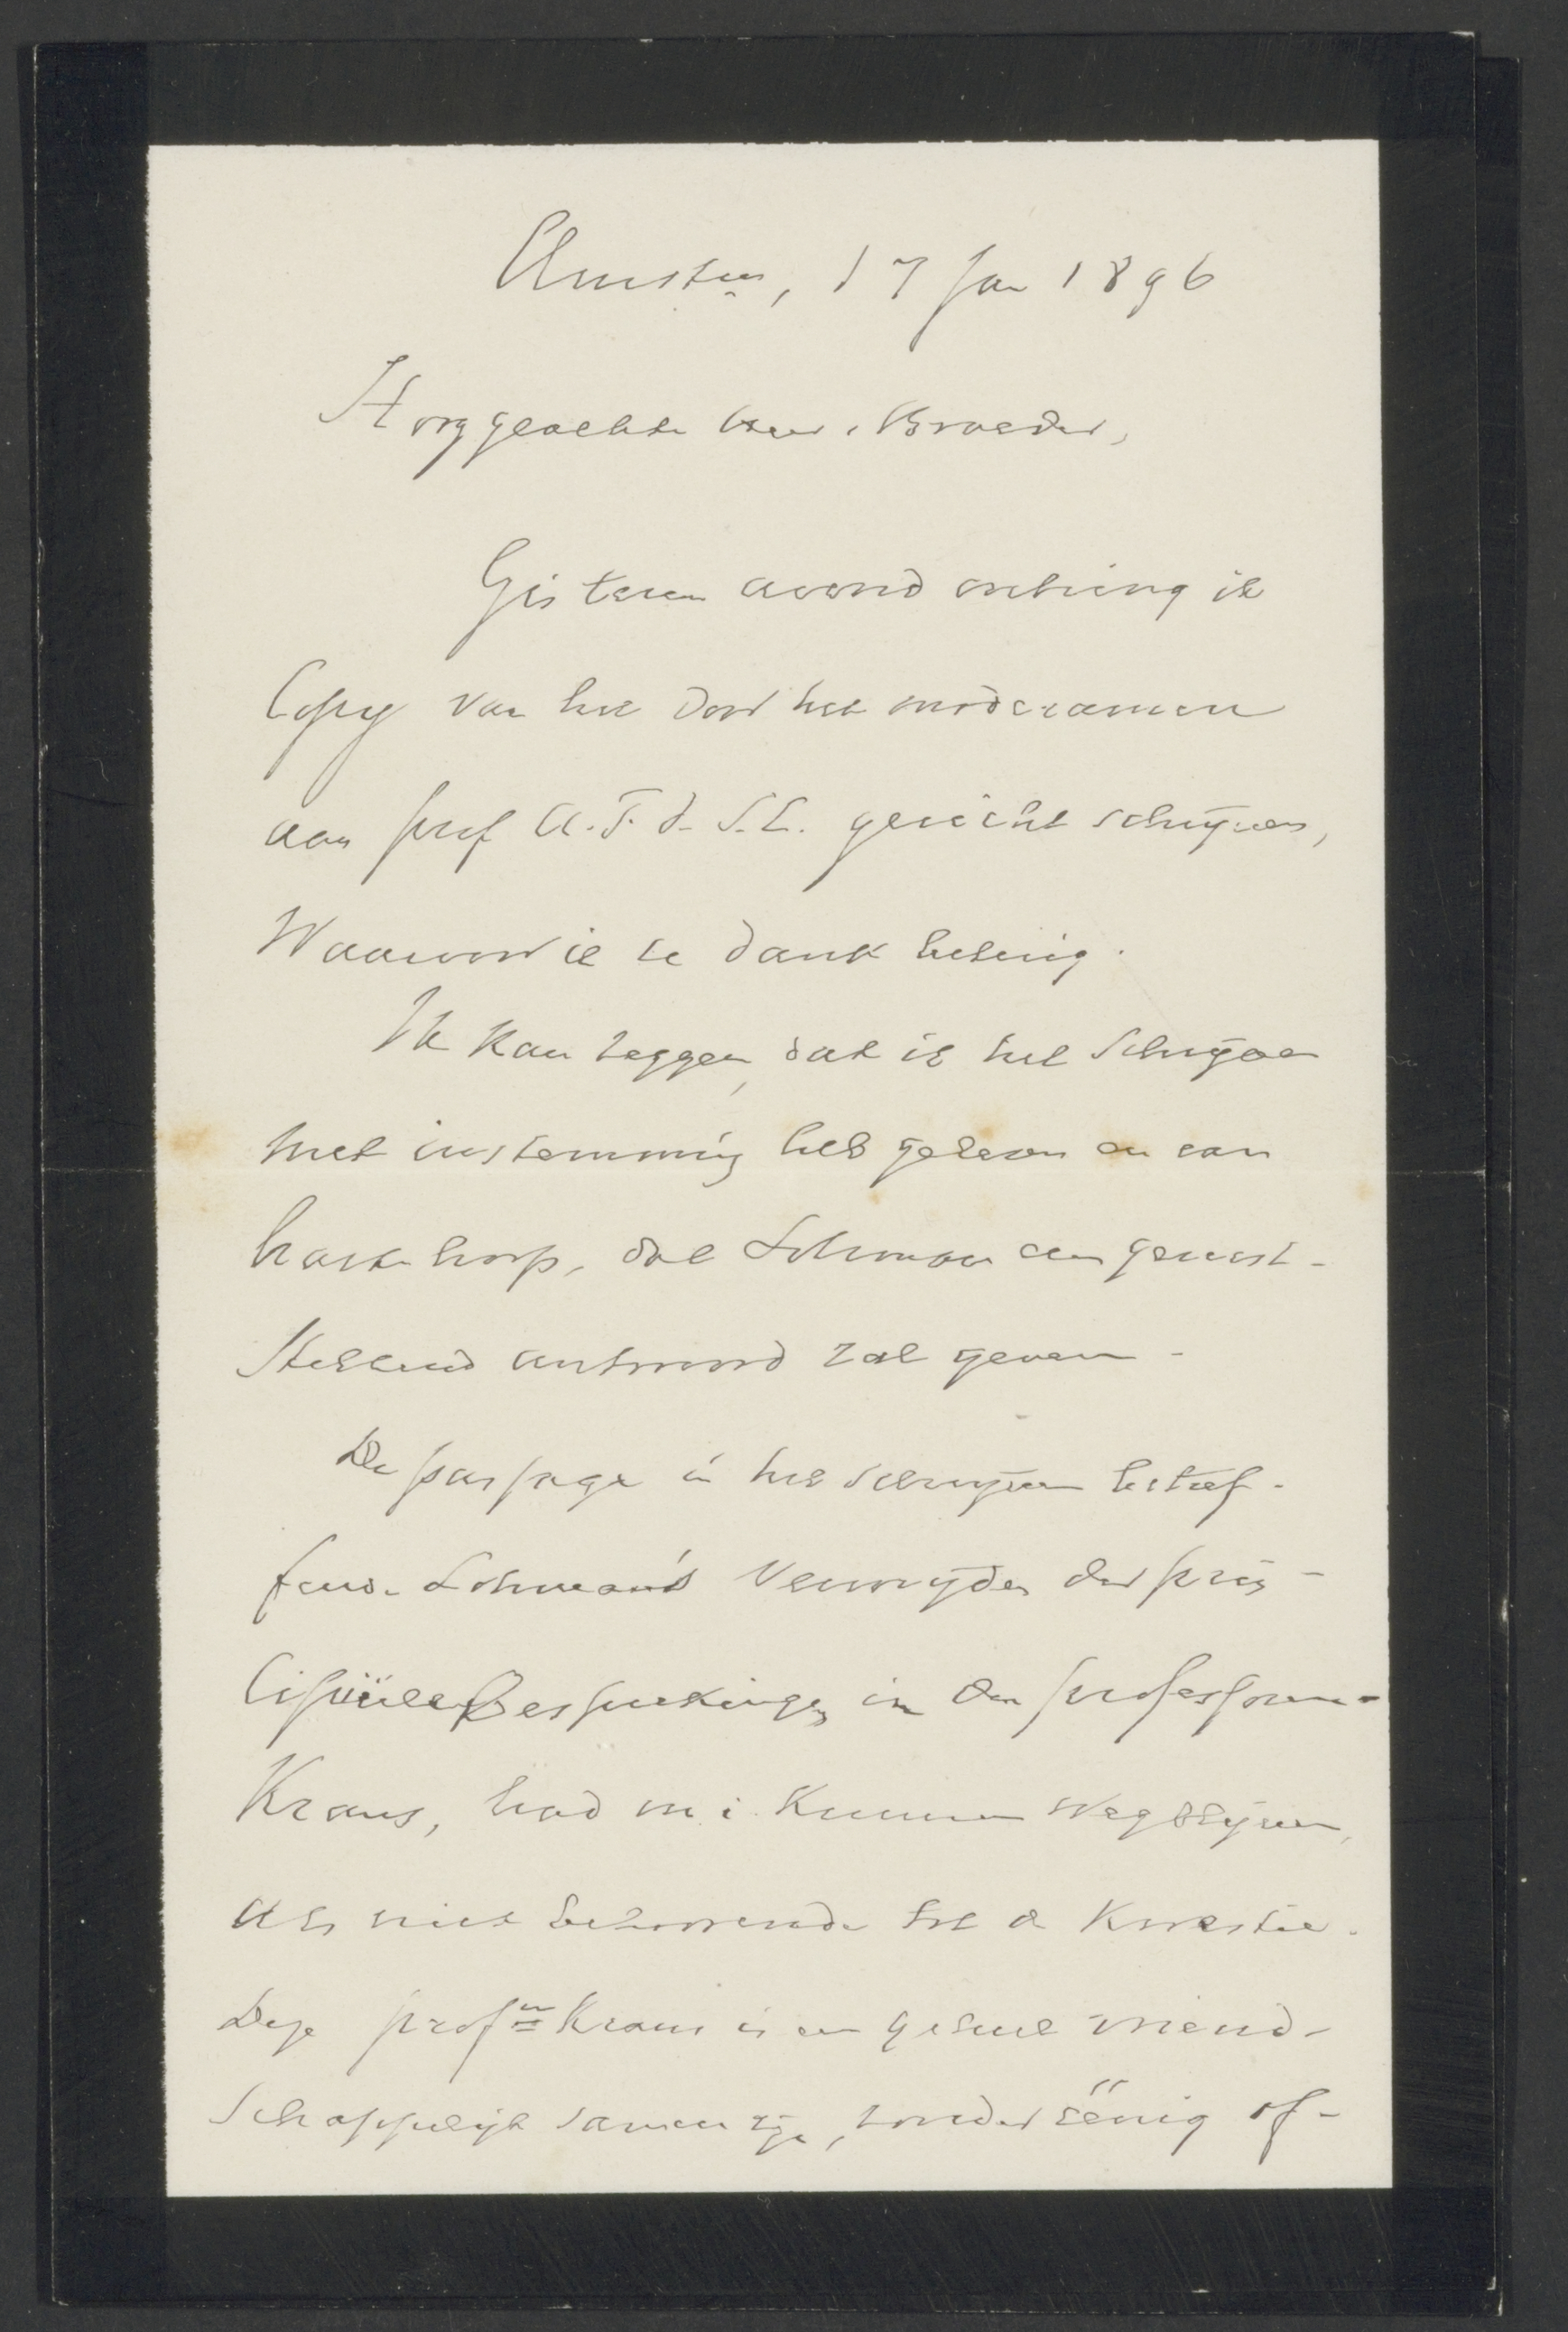 Amstm, 17 Jan 1896
Hooggeachte Heer & Broeder,
Gisteren avond ontving ik
Copy van het door het moderamen
aan prof A.F. d. S.L. gericht schrijven,
Waarvoor ik te dank betuig.
Ik kan zeggen, dat ik het schrijven
met instemming heb gelezen en van
harte hoop, dat Lohman een gerust-
stellend antwoord zal geven.
De passage in het schrijven betref-
fende Lohman's vermijden der prin-
cipiëele Besprekingen in den professoren-
Krans, had m.i. kunnen wegblijven,
als niet behoorende tot de kwestie.
Deze profn Krans is een geheel vriend-
schappelijk samenzijn, zonder eenig of-